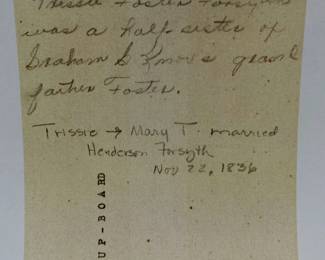 Trissie Foster Forsyth
was a half sister of
Graham & Knovs grand
father Foster.
Trissie → Mary T. married
Henderson Forsyth
Nov 22, 1836
UP-BOARD